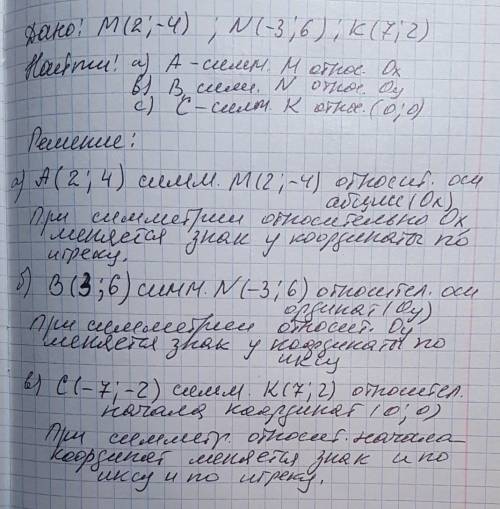 Дано: M(2;-4) ; N(-3;6) ; K(7;2)
Найти: а) A - симм. M относ. Ox
в) B симм. N относ. Oy
с) C - симм. K относ. (0;0)
Решение:
а) A(2;4) симм. M(2;-4) относит. оси
абцисс (Ox)
При симметрии относительно Ox
меняется знак у координаты по
игреку.
б) B(3;6) симм. N(-3;6) относител. оси
ординат (Oy)
При симметрии относит. Oy
меняется знак у координаты по
иксу
в) C(-7;-2) симм. K(7;2) относител.
начала координат (0;0)
При симметр. относит. начала
координат меняется знак и по
иксу и по игреку.